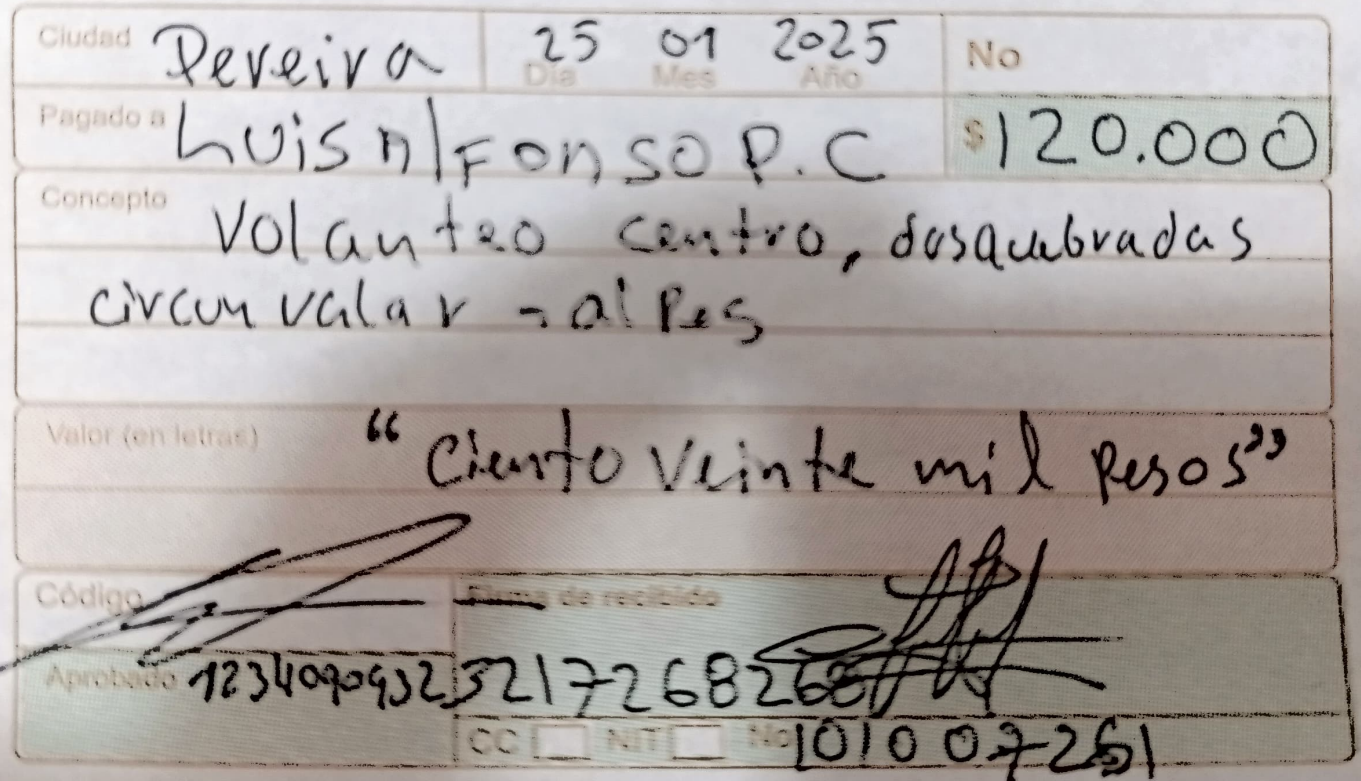 Ciudad Pereira 25 01 2025 No
Día Mes Año
Pagado a Luis Alfonso P.C $120.000
Concepto Volanteo centro, dosquebradas
circunvalar - alpes
Valor (en letras) "Ciento Veinte mil pesos"
Código Firma de recibido
Aprobado 1234090932 3217268268
CC NIT No 101007261